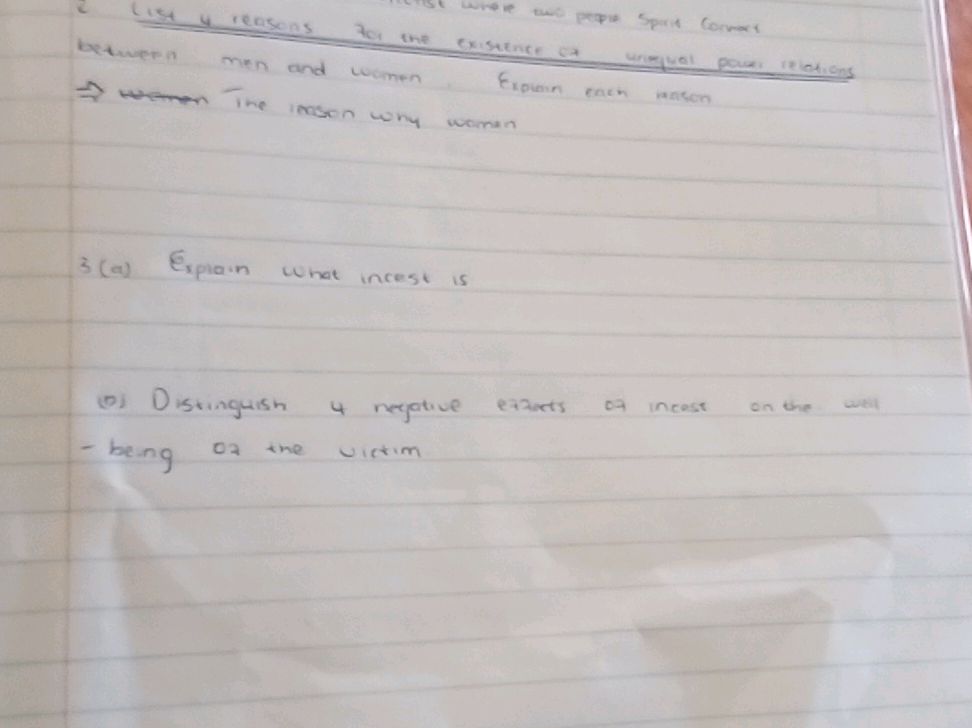 where two people Spirit Connect
2 List 4 reasons for the existence of unequal power relations
between men and women. Explain each reason
⇒ women The reason why women
3(a) Explain what incest is
(b) Distinguish 4 negative effects of incest on the well
- being of the victim